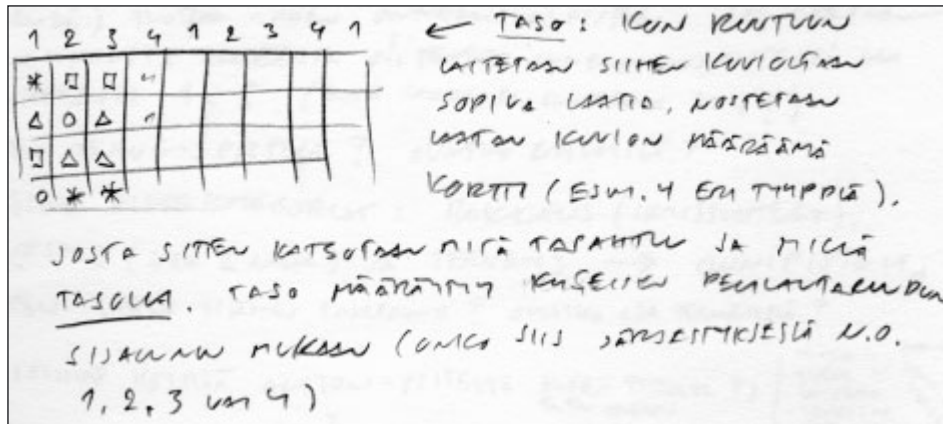 1 2 3 4 1 2 3 4 1
← TASO: KUN RUUTUUN
LAITETAAN SIIHEN KUVIOLTAAN
SOPIVA LAATTA, NOSTETAAN
LAATAN KUVION MÄÄRÄÄMÄ
KORTTI (ESIM. 4 ERI TYYPPIÄ).
JOSTA SITTEN KATSOTAAN MITÄ TAPAHTUU JA MILLÄ
TASOLLA. TASO MÄÄRÄYTYY KYSEISEN PELILAUTARUUDUN
SIJAINNIN MUKAAN (ONKO SIIS JÄRJESTYKSESSÄ N.O.
1, 2, 3 VAI 4)